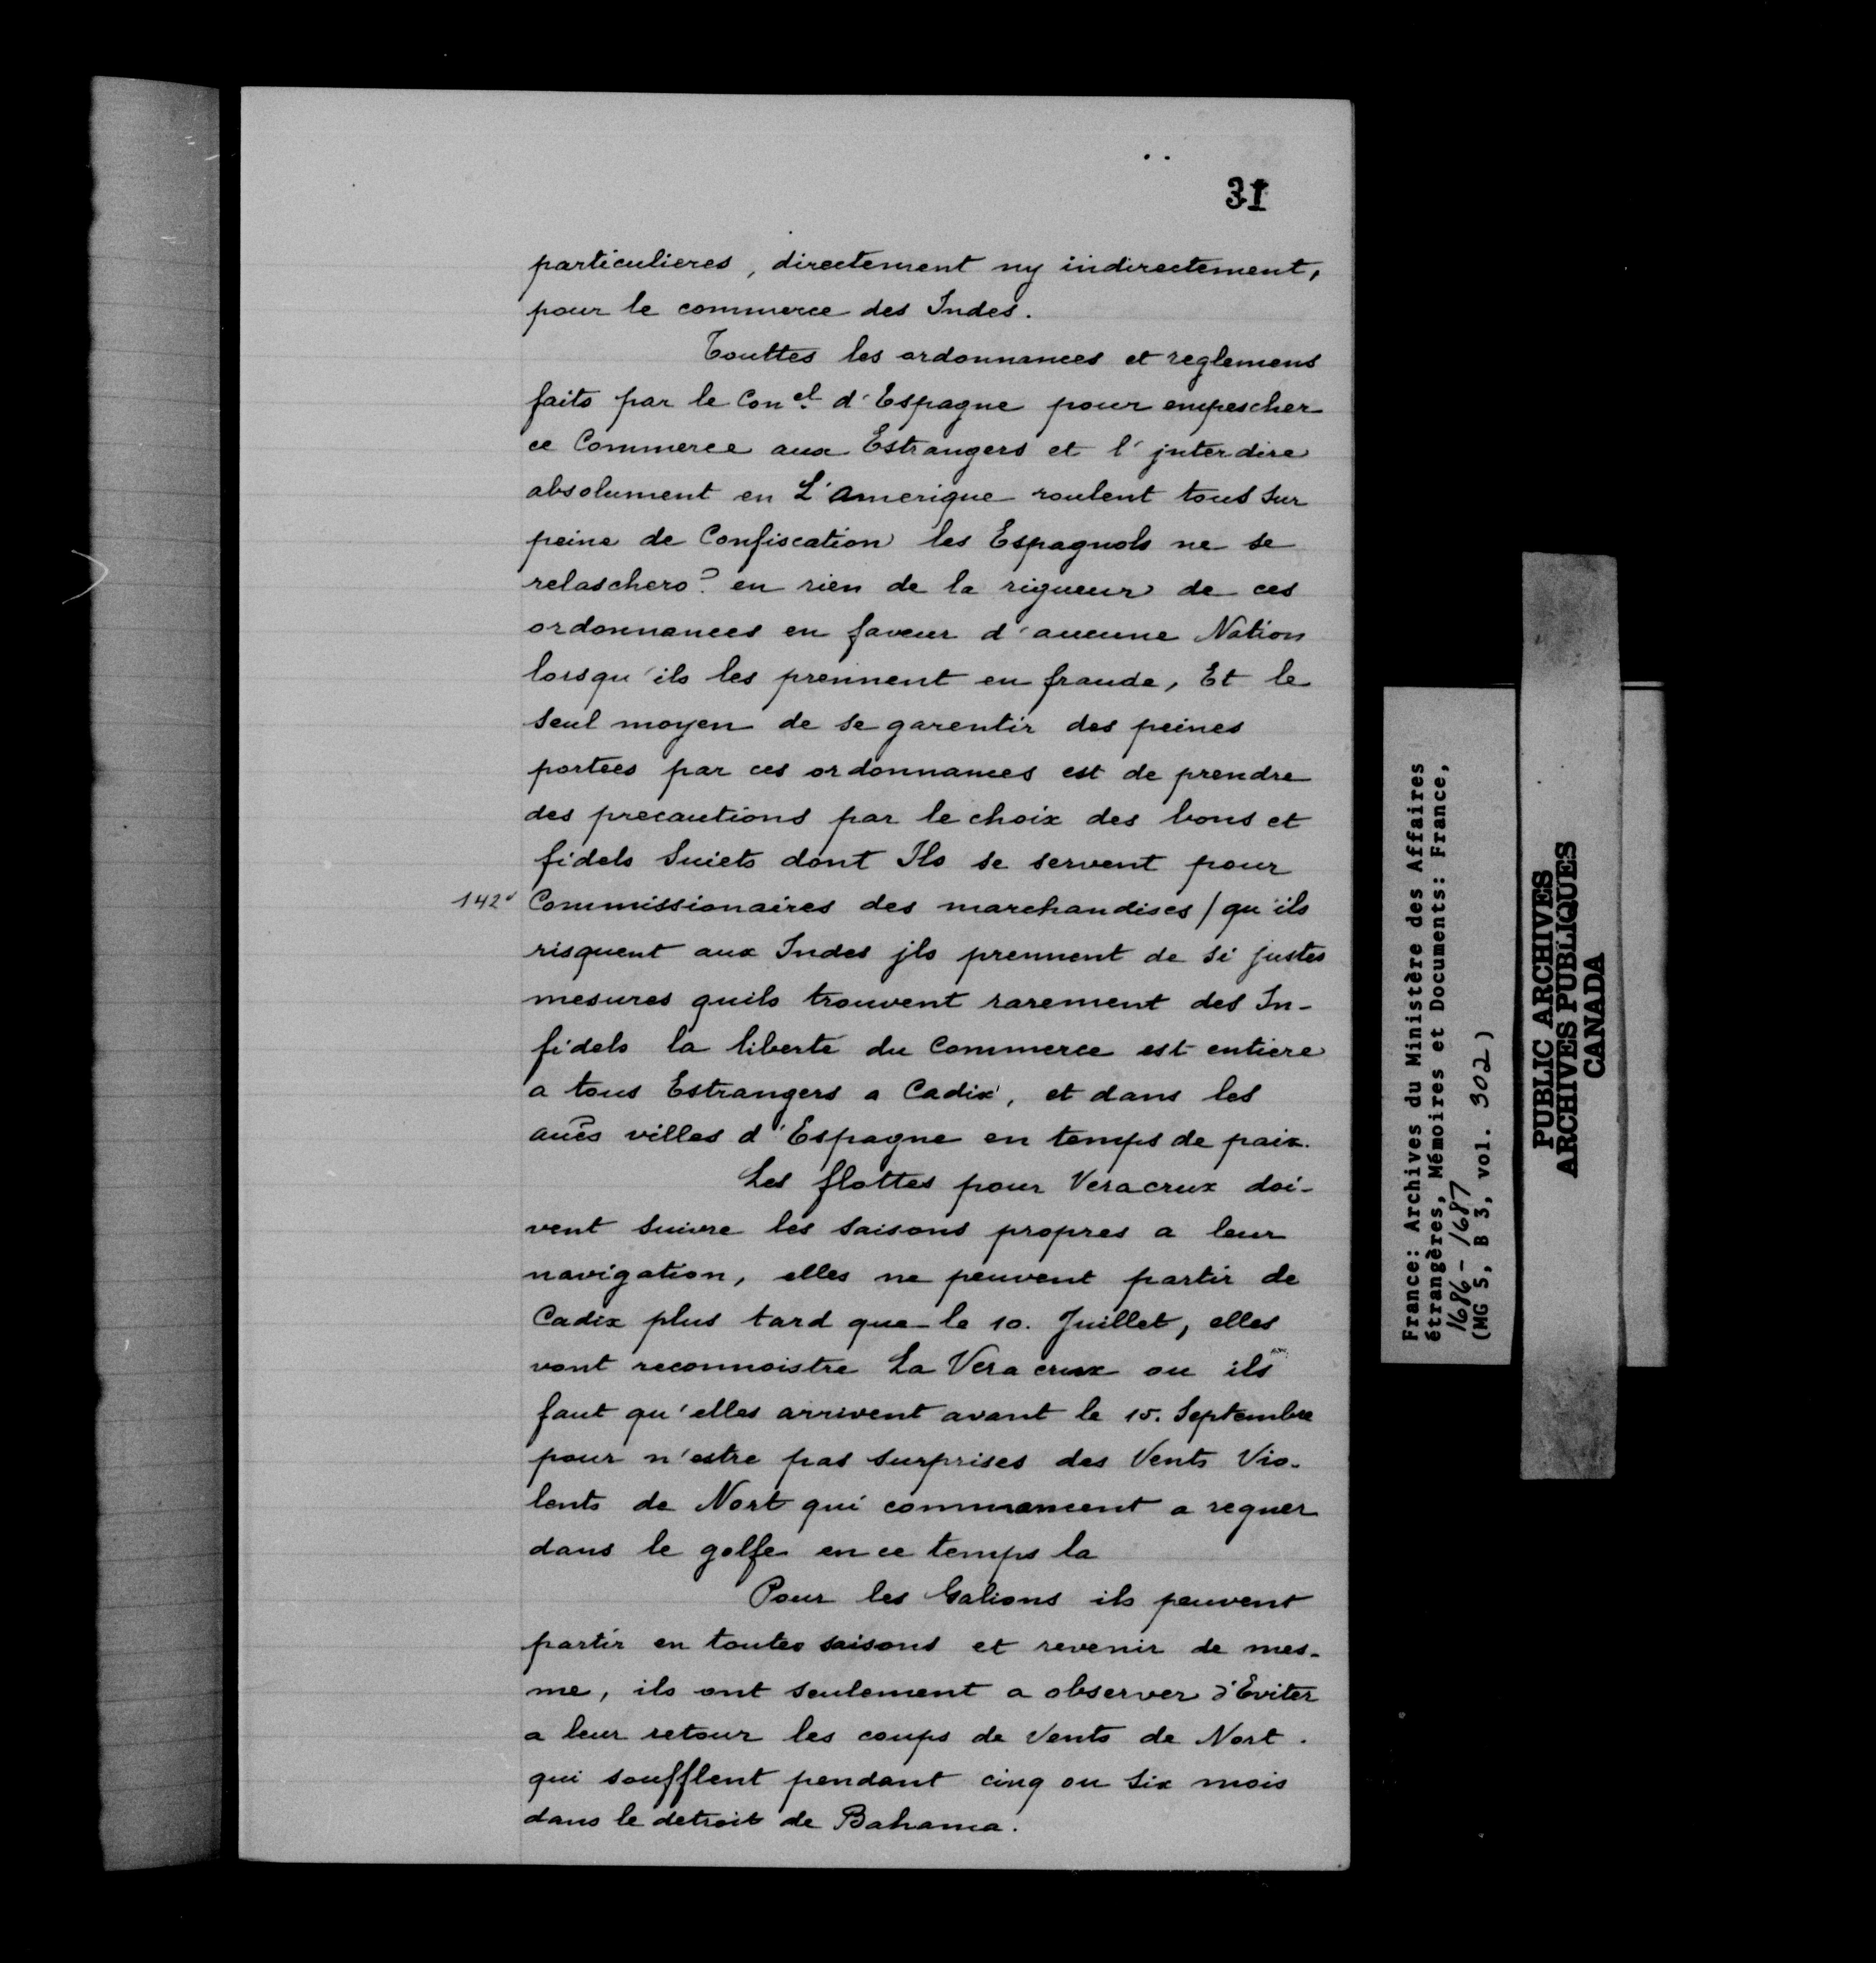 31
particulieres, directement ny indirectement,
pour le commerce des Indes.
Touttes les ordonnances et reglemens
faits par le Con.el d'Espagne pour empescher
ce Commerce aux Estrangers et l'jnterdire
absolument en L'amerique roulent tous sur
peine de Confiscation les Espagnols ne se
relaschero? en rien de la rigueur de ces
ordonnances en faveur d'aucune Nation
lorsqu'ils les prennent en fraude, Et le
seul moyen de se garentir des peines
portees par ces ordonnances est de prendre
des precautions par le choix des bons et
fidels Suiets dont Ils se servent pour
142v Commissionaires des marchandises / qu'ils
risquent aux Indes jls prennent de si justes
mesures quils trouvent rarement des In-
fidels la liberte du Commerce est entiere
a tous Estrangers a Cadix, et dans les
aues villes d'Espagne en temps de paix.
Les flottes pour Veracrux doi-
vent suivre les saisons propres a leur
navigation, elles ne peuvent partir de
Cadix plus tard que le 10. Juillet, elles
vont reconnoistre La Vera crux ou ils
faut qu'elles arrivent avant le 15. Septembre
pour n'estre pas surprises des Vents Vio-
lents de Nort qui commancent a regner
dans le golfe en ce temps la
Pour les Galions ils peuvent
partir en toutes saisons et revenir de mes-
me, ils ont seulement a observer d'Eviter
a leur retour les coups de Vents de Nort.
qui soufflent pendant cinq ou six mois
dans le detroit de Bahama.
France: Archives du Ministère des Affaires
étrangères, Mémoires et Documents: France,
1686-1687
(MG 5, B 3, vol. 302)
PUBLIC ARCHIVES
ARCHIVES PUBLIQUES
CANADA